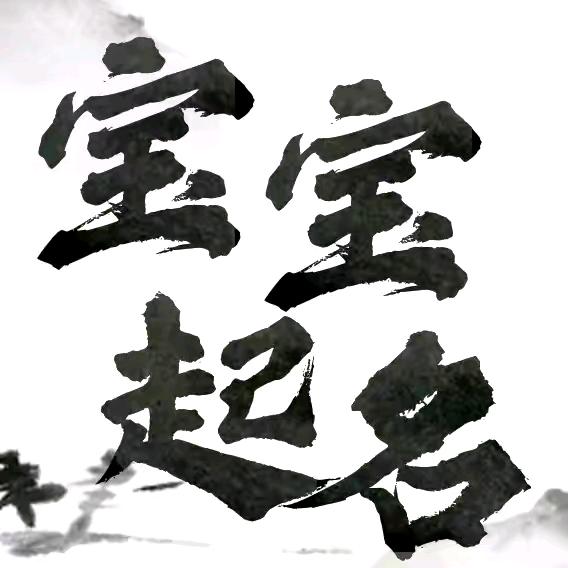 宝宝
起名